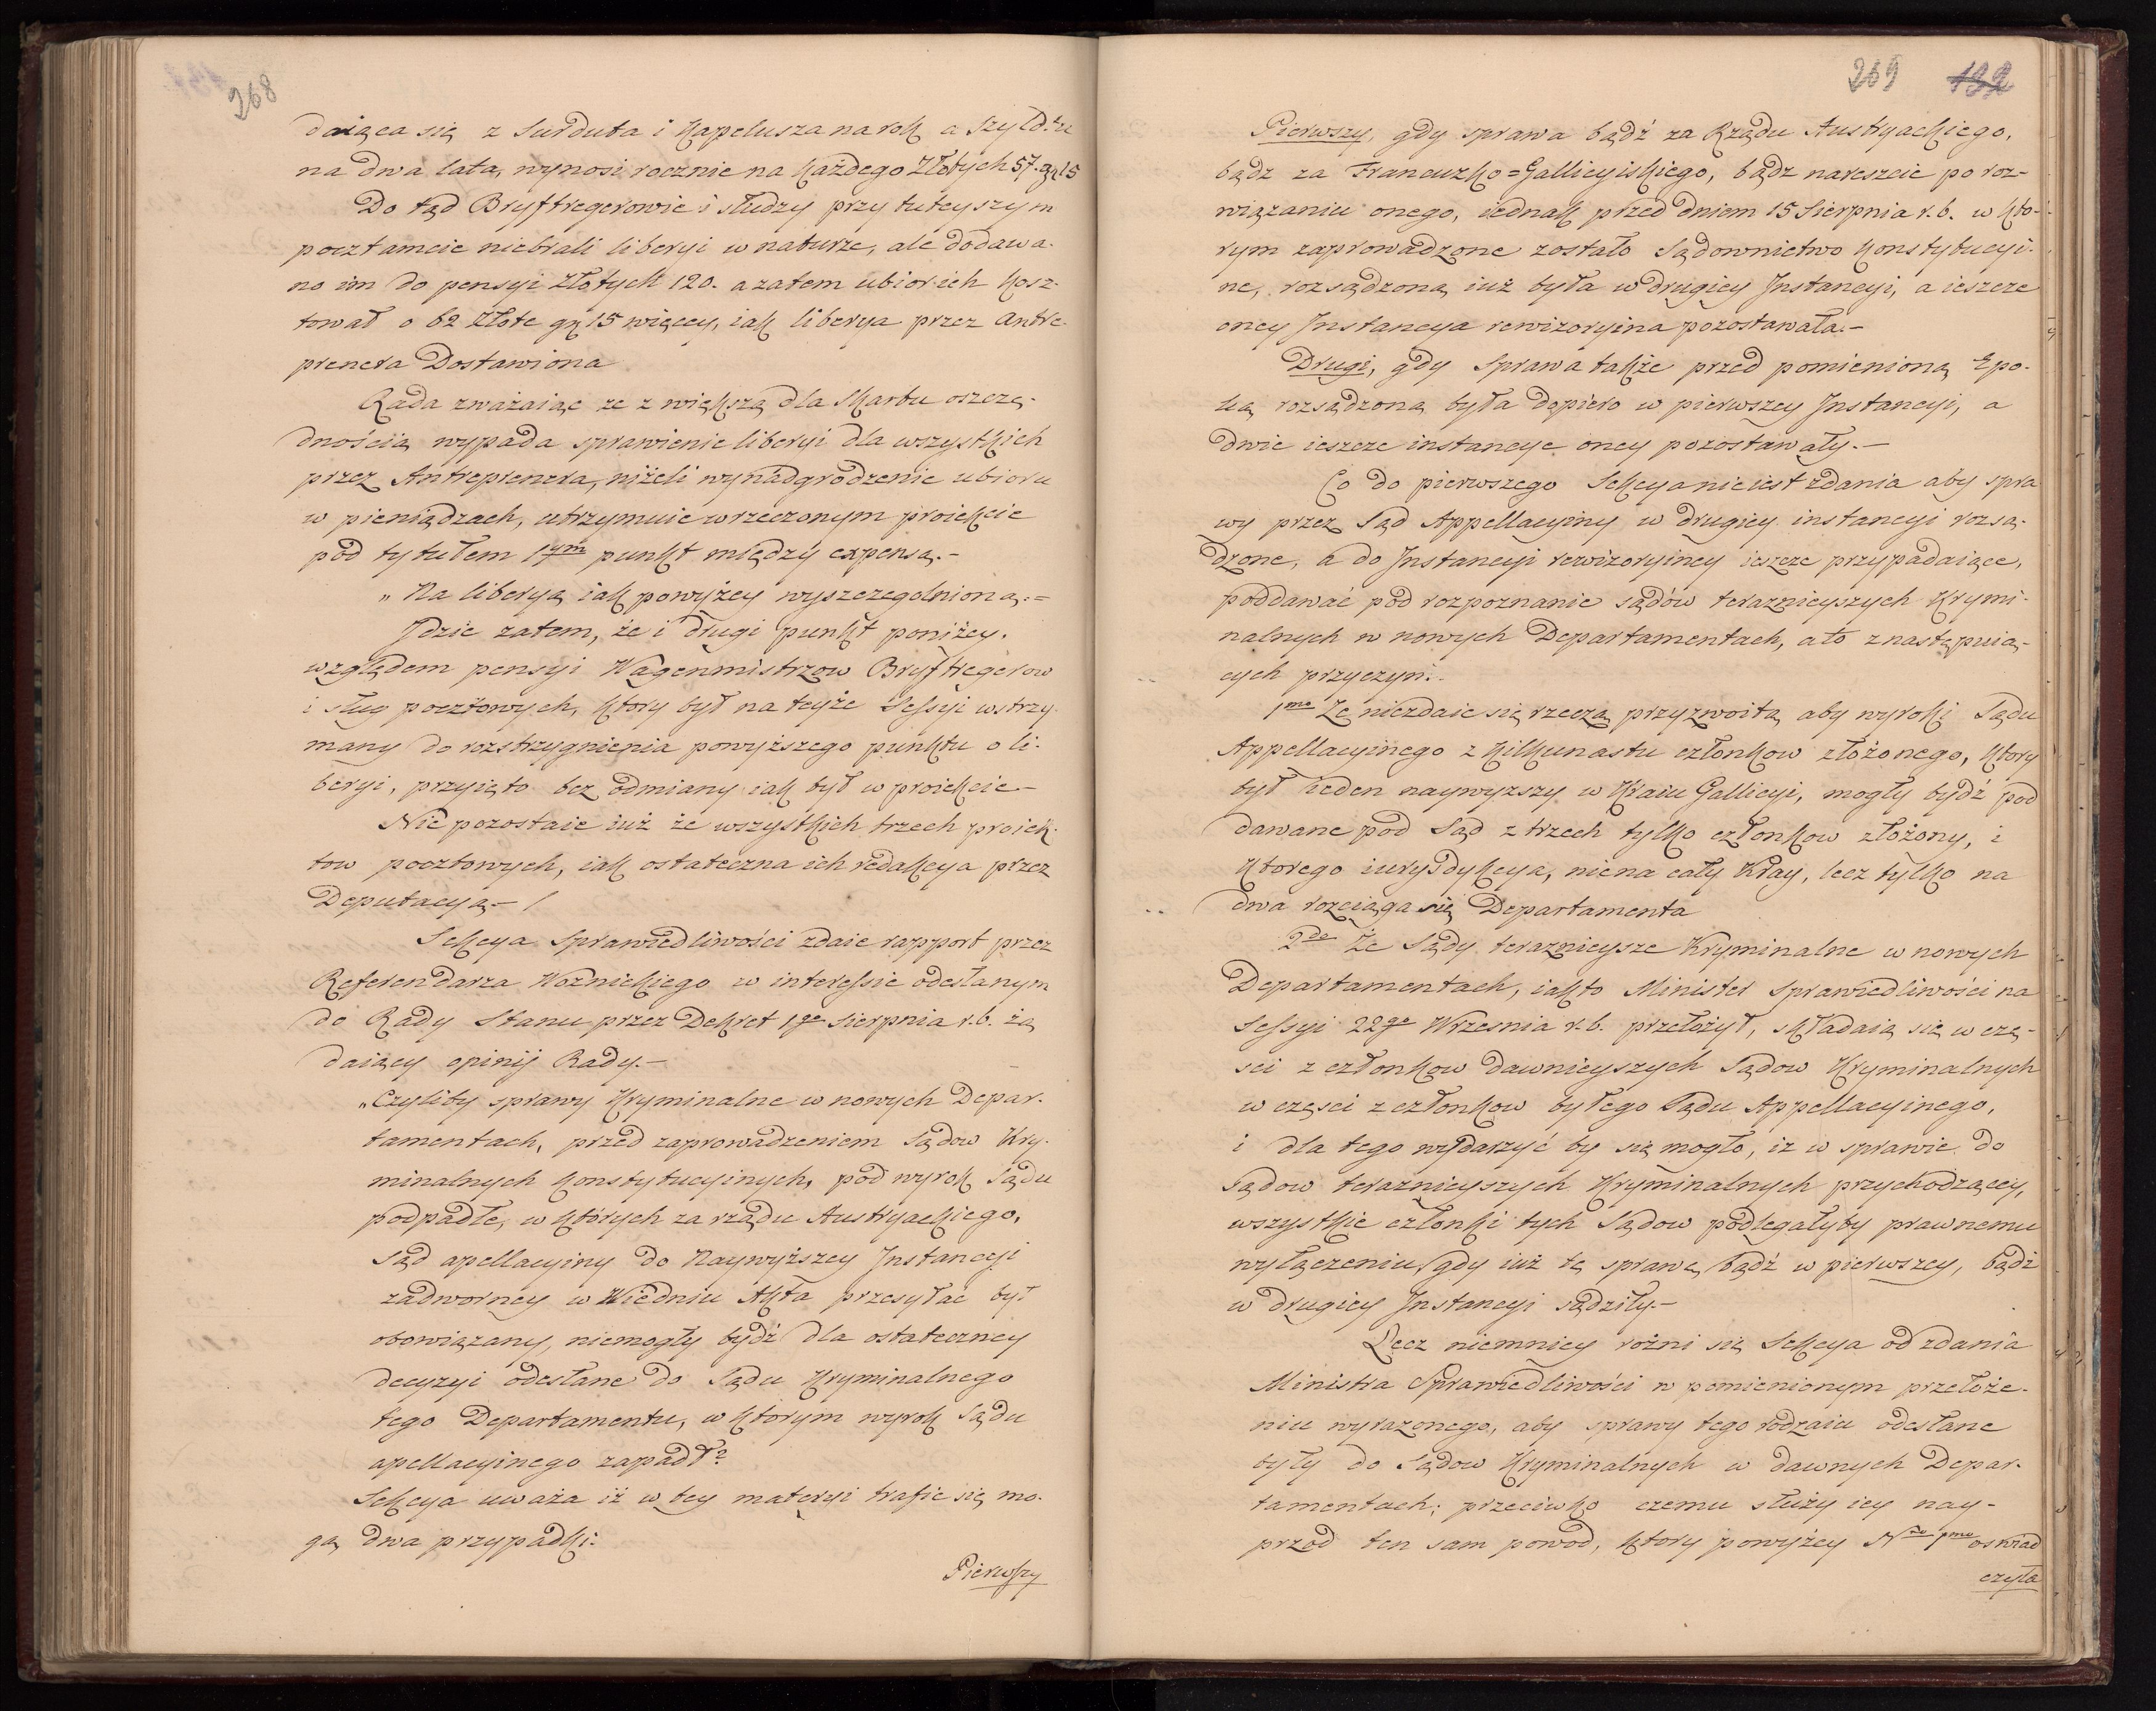 268
daiąca się z Surduta i Kapelusza na rok a Szyld.tu
na dwa lata, wynosi rocznie na każdego Złotych 57. gr 15
Do tąd Bryftregerowie i słudzy przy tuteyszym
pocztamcie niebrali liberyi w naturze, ale dodawa-
no im do pensyi Złotych 120. a zatem ubior ich kosz-
tował o 62 Złote gr 15 więcey, iak liberya przez Antre-
prenera Dostawiona
Rada zważaiąc ze z większą dla Skarbu oszczę-
dnością wypada sprawienie liberyi dla wszystkich
przez Antreprenera, niżeli wynadgrodzenie ubioru
w pieniądzach, utrzymuie w rzeczonym proiekcie
pod tytułem 1ym punkt między expensą.-
„ Na liberyą iak powyżey wyszczegolnioną.-
Jdzie zatem, że i drugi punkt poniżey.
względem pensyi Wagenmistrzow Bryftregerow
i sług pocztowych, ktory był na teyże Sessyi wstrzy-
many do rozstrzygnienia powyższego punktu o li-
beryi, przyięto bez odmiany iak był w proiekcie-
Nie pozostaie iuż że wszystkich trzech proiek-
tow pocztowych, iak ostateczna ich redakcya przez
Deputacyą.- /
Sekcya Sprawiedliwości zdaie rapport przez
Referendarza Woźnickiego w interessie odesłanym
do Rady Stanu przez Dekret 1go Sierpnia r.b. żą
daiący opinij Rady.-
„Czyliby sprawy kryminalne w nowych Depar-
tamentach, przed zaprowadzeniem Sądow Kry-
minalnych konstytucyinych, pod wyrok Sądu
podpadłe, w których za rządu Austryackiego,
Sąd apellacyiny do Naywyższey Jnstancyi
zadworney w Wiedniu Akta przesyłac był
obowiązany, niemogły bydź dla ostateczney
decyzyi odesłane do Sądu Kryminalnego
tego Departamentu, w ktorym wyrok Sądu
apellacyinego zapadł?
Sekcya uważa iż w tey materyi trafic się mo-
gą dwa przypadki:
Pierwszy
269 132
Pierwszy, gdy sprawa bądź za Rządu Austryackiego,
bądz za Francuzko=Gallicyiskiego, bądz nareszcie po roz-
wiązaniu onego, iednak przed dniem 15 Sierpnia r.b. w kto-
rym zaprowadzone zostało Sądownictwo konstytucyi-
ne, rozsądzoną iuż była w drugiey Jnstancyi, a ieszcze
oney Jnstancya rewizoryina pozostawała.-
Drugi, gdy Sprawa także przed pomienioną Epo-
ką rozsądzoną była dopiero w pierwszey Jnstancyi, a
dwie ieszcze instancye oney pozostawały.-
Co do pierwszego Sekcya nie iest zdania aby spra
wy przez Sąd Appellacyiny w drugiey instancyi rozsą-
dzone, a do Jnstancyi rewizoryiney ieszcze przypadaiące,
poddawać pod rozpoznanie sądów teraznieyszych Krymi-
nalnych w nowych Departamentach, a to z następuią-
cych przyczyn:
1mo Ze niezdaie się rzeczą przyzwoitą aby wyroki Sądu
Appellacyinego z kilkunastu członkow złożonego, ktory
był ieden naywyzszy w Kraiu Gallicyi, mogły bydź pod
dawane pod Sąd z trzech tylko członkow złożony, i
ktorego iurysdykcya, nie na cały Kray, lecz tylko na
dwa rozciąga się Departamenta
2do Że Sądy teraznieysze Kryminalne w nowych
Departamentach, iak to Minister Sprawiedliwości na
Sessyi 22go Wrzesnia r.b. przełożył, składaią się w czę-
sci z członkow dawnieyszych Sądow Kryminalnych
w częsci z członkow byłego Sądu Appellacyinego,
i dla tego wydarzyć by się mogło, iz w sprawie do
Sądow teraznieyszych Kryminalnych przychodzącey,
wszystkie członki tych Sądow podlegałyby prawnemu
wyłączeniu, gdy iuż tę sprawę bądź w pierwszey, bądź
w drugiey Jnstancyi sądziły.-
Lecz niemniey rożni się Sekcya od zdania
Ministra Sprawiedliwości w pomienionym przełoże-
niu wyrazonego, aby sprawy tego rodzaiu odesłane
były do Sądow Kryminalnych w dawnych Depar-
tamentach; przeciwko czemu służy iey nay-
przod ten sam powod, ktory powyżey Nro 1mo oswiad
czyła